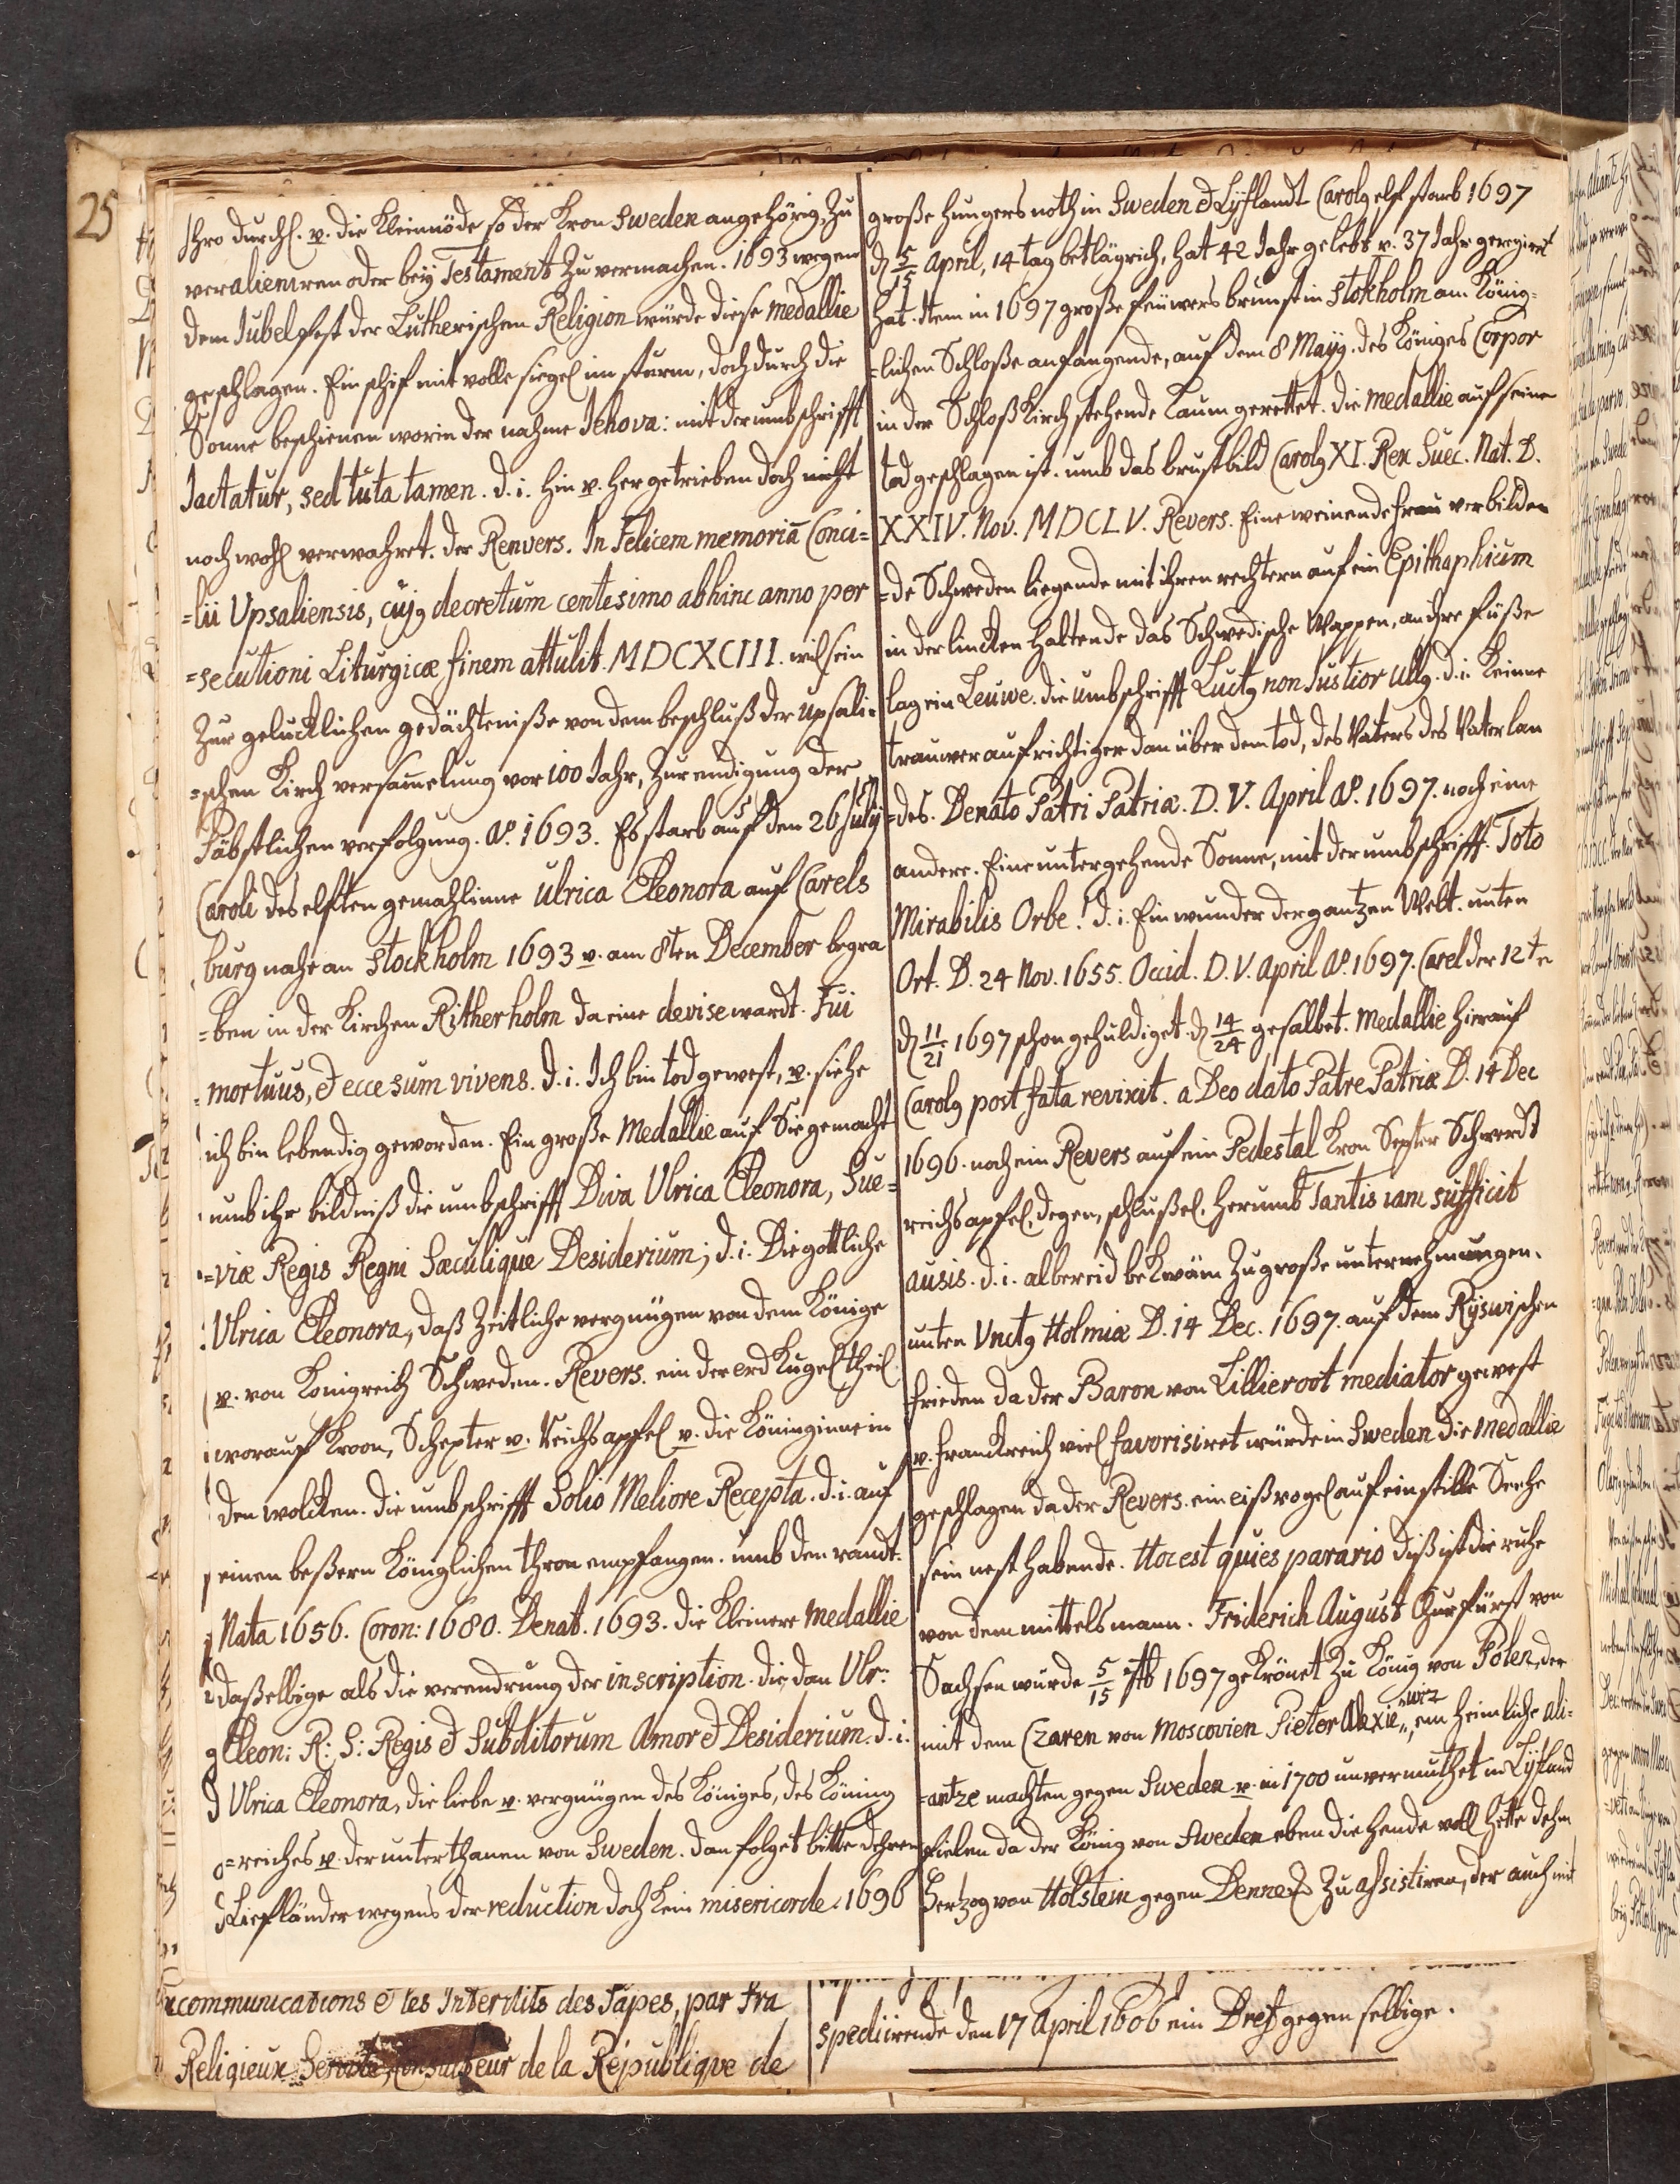 25
Ihro durchl. v. die Kleinöde so der Kron Sweden angehörig, zu
veralieniren oder bey Testament zu vermachen. 1693 wegen
dem Jubelfest der Lutherischen Religion würde diese medallie
geschlagen. Ein schif mit volle siegel im sturm, doch durch die
Sonne beschienen worin der nahme Jehova: mit der umbschrifft
Jactatur, sed tuta tamen. d. i. hin v. her getrieben doch nicht
noch wohl verwahret. der Renvers. In Felicem memoriā Conci=
=lii Upsaliensis, cujꝰ decretum centesimo abhinc anno per
=secutioni Liturgicæ finem attulit. MDCXCIII. wil sein
Zur gelucklichen gedächteniße von dem beschluß der upsali=
=schen Kirch versam̄elung vor 100 Jahr, zur endigung der
Päbstlichen verfolgung. Aº. 1693. Es starb auf den 26 July
Caroli des elften gemahlinne Ulrica Eleonora auf Carels
burg nahe an Stockholm 1693 v. am 8ten December begra
=ben in der Kirchen Ritherholm da eine devise wardt. Fui
mortuus, & ecce sum vivens. d. i. Ich bin tod gewest, v. siehe
ich bin lebendig geworden. Ein große Medallie auf Sie gemacht
umb ihr bildniß die umbschrifft Diva Ulrica Eleonora, Sue=
=viæ Regis Regni Sæculique Desiderium; d. i. Die gottliche
Ulrica Eleonora, daß Zeitliche vergnügen von dem Könige
v. von Konigreich Schweden. Revers. ein der erd Kugel theil
worauf Kroon, Schepter v. Reichsapfel v. die Köninginne in
den wolcken. die umbschrifft Solio Meliore Recepta. d. i. auf
einen beßern Königlichen thron empfangen. umb den randt.
Nata 1656. Coron: 1680. Denat. 1693. die kleinere medallie
daßelbige als die verendrung der inscription. die dan Ulr:
Eleon: R: S: Regis & Subditorum Amor & Desiderium. d. i.
Ulrica Eleonora, die liebe v. vergnügen des Königes, des Köning
=reiches v. der unterthanen von Sweden. dan folget bitte dehren
Liefländer wegens der reduction doch kein misericorde. 1696
große hungers noth in Sweden & Lyflandt Carolꝰ elf starb 1697
d. 5/15 April, 14 tag betlägrich, hat 42 Jahr gelebt v. 37 Jahr geregiert
hat. Item in 1697 große feüwers brunst in Stokholm am König=
=lichen Schloße anfangende, auf dem 8 Mayꝫ. des Königes Corpor
in der Schloß Kirch stehende kaum gerettet. die medallie auf seine
tod geschlagen ist. umb das brustbild Carolꝰ XI. Rex Suec. Nat. D.
XXIV. Nov. MDCLV. Revers. Eine weinende frau verbilden
=de Schweden liegende mit ihren rechtern auf ein Epithaphium
in der lincken haltende das Schwedische Wappen, an ihre füße
lag ein Leuwe. die umbschrifft Luctꝰ non Justior Ullꝰ. d. i. keinne
trauwer aufrichtiger dan über dem tod, des Vaters des Vaterlan
=des. Denato Patri Patriæ. D. V. April Aº. 1697. noch eine
andere. Eine untergehende Sonne, mit der umbschrifft. Toto
Mirabilis Orbe! d. i. Ein wunder der gantzen Welt. unten
Ort. D. 24 Nov. 1655. Occid. D. V. April Aº. 1697. Carel der 12te
d. 11/21 1697 schon gehuldiget. d. 14/24 gesalbet. Medallie hierauf
Carolꝰ post fata revixit. a Deo dato Patre Patriæ D. 14 Dec
1696. noch ein Revers auf ein Pedestal Kron Septer Schwerdt
reichsapfel, degen, schlußel. herumb Tantis iam sufficit
ausis. d. i. albereid bekwäm zu große unternehmungen.
unten Unctꝰ Holmiæ D. 14 Dec. 1697. auf dem Ryswischen
frieden da der Baron von Lillieroot mediator gewest
v. franckreich viel favorisiret würde in Sweden die Medallie
geschlagen da der Revers. ein eißvogel auf ein stille Seehe
sein nest habende. Hoc est quies parario diß ist die ruhe
von dem mittelsmann. Friderich August Churfürst von
Sachsen wurde 5/15 7tb 1697 gekrönet zu König von Polen, der
mit dem Czaren von Moscovien Pieter Alexiewiz ein heimliche ali=
=antze machten gegen Sweden v. in 1700 unvermuthet in Lyfland
fielen da der König von Sweden eben die hende voll hette dehm
Hertzog von Holstein gegen Dennem. zu assistiren, der auch mit
communications & les Interdits des Papes, par fra
Religieux de la République de
spediirende den 17 April 1606 ein Bref gegen selbige.